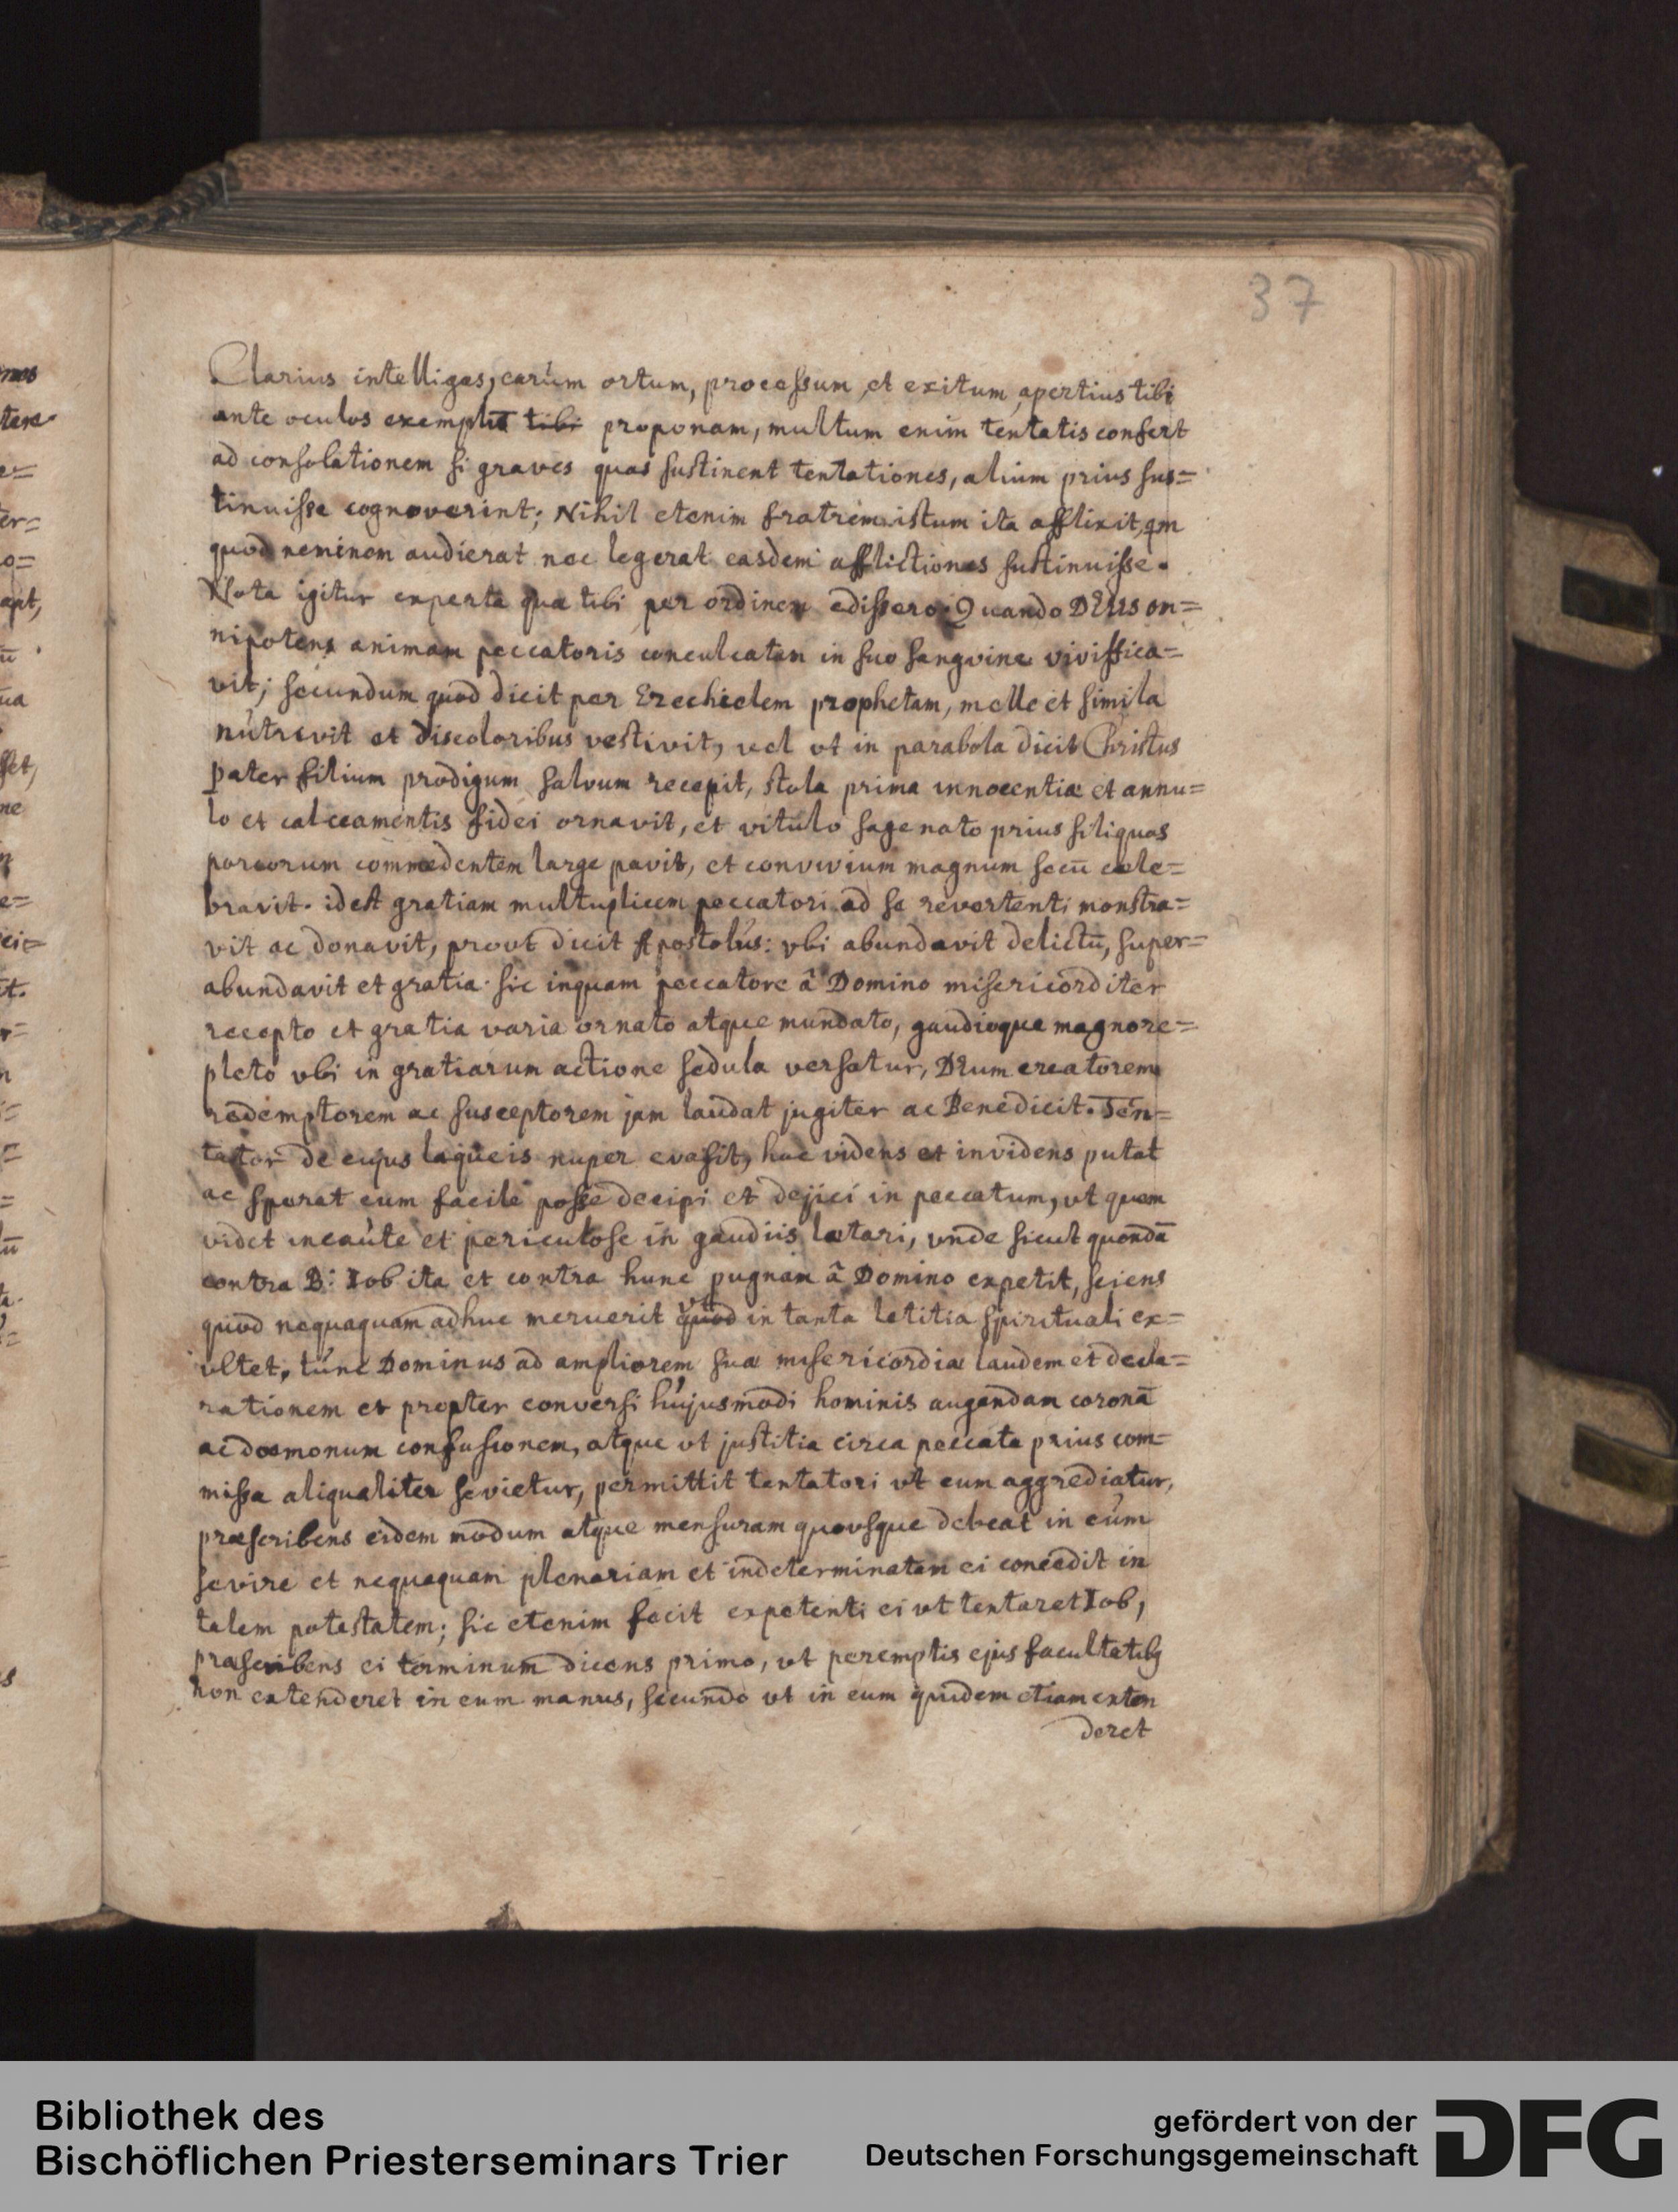 37
Clarius intelligas, earúm ortum, processum et exitum apertius tibi
ante oculos exemplū tibi proponam, multum enim tentatis confert
ad consolationem si graves quas sustinent tentationes, alium prius sus=
tinuisse cognoverint; Nihil etenim fratrem istum ita afflixit, qm
quod neminem audierat nec legerat easdem afflictiones sustinuisse.
Nota igitur experta quæ tibi per ordinem edissero. Quando DEUS om=
nipotens animam peccatoris conculcatam in suo sangvine viviffica=
vit; secundum quod dicit per Ezechielem prophetam, melle et simila
nútrivit et discoloribus vestivit, vel vt in parabola dicit Christus
pater filium prodigum salvum recepit, stola prima innocentiæ et annu=
lo et calceamentis fidei ornavit, et vitulo sagenato prius siliquas
porcorum commedentem large pavit, et convivium magnum secū cele=
bravit. idest gratiam multuplicem peccatori ad se revertenti monstra=
vit ac donavit, provt dicit Apostolús: vbi abundavit delictū, super=
abundavit et gratia. sic inquam peccatore â Domino misericorditer
recepto et gratia varia ornato atque mundato, gaudioque magno re=
pleto vbi in gratiarum actione sedula versatur, DEum creatorem
redemptorem ac susceptorem jam laudat jugiter ac Benedicit. Ten=
tator de cujus laqueis nuper evasit, hac videns et invidens putat
ac sperat eum facile posse decipi et dejici in peccatum, vt quem
videt incaúte et periculose in gaudiis lætari, vnde sicut quondā
contra B: Iob ita et contra hunc pugnam â Domino expetit, sciens
quod nequaquam adhuc meruerit quod vt in tanta letitia spirituali ex=
vltet, túnc Dominus ad ampliorem suæ misericordiæ laudem et decla=
rationem et propter conversi hújusmodi hominis augendam coronā
ac dœmonum confusionem, atque vt justitia circa peccata prius com=
missa aliqualiter sevietur, permittit tentatori vt eum aggrediatur,
præscribens eidem modum atque mensuram quovsque debeat in eúm
sevire et nequaquam plenariam et indeterminatam ei concedit in
talem potestatem; sic etenim fecit expetenti ei vt tentaret Iob,
præscribens ei terminum dicens primo, vt peremptis ejus facultatibꝫ
non extenderet in eum manus, secundo vt in eum quidem etiam exten
deret
nos
tere
Bibliothek des
Bischöflichen Priesterseminars Trier
gefördert von der
Deutschen Forschungsgemeinschaft
DFG